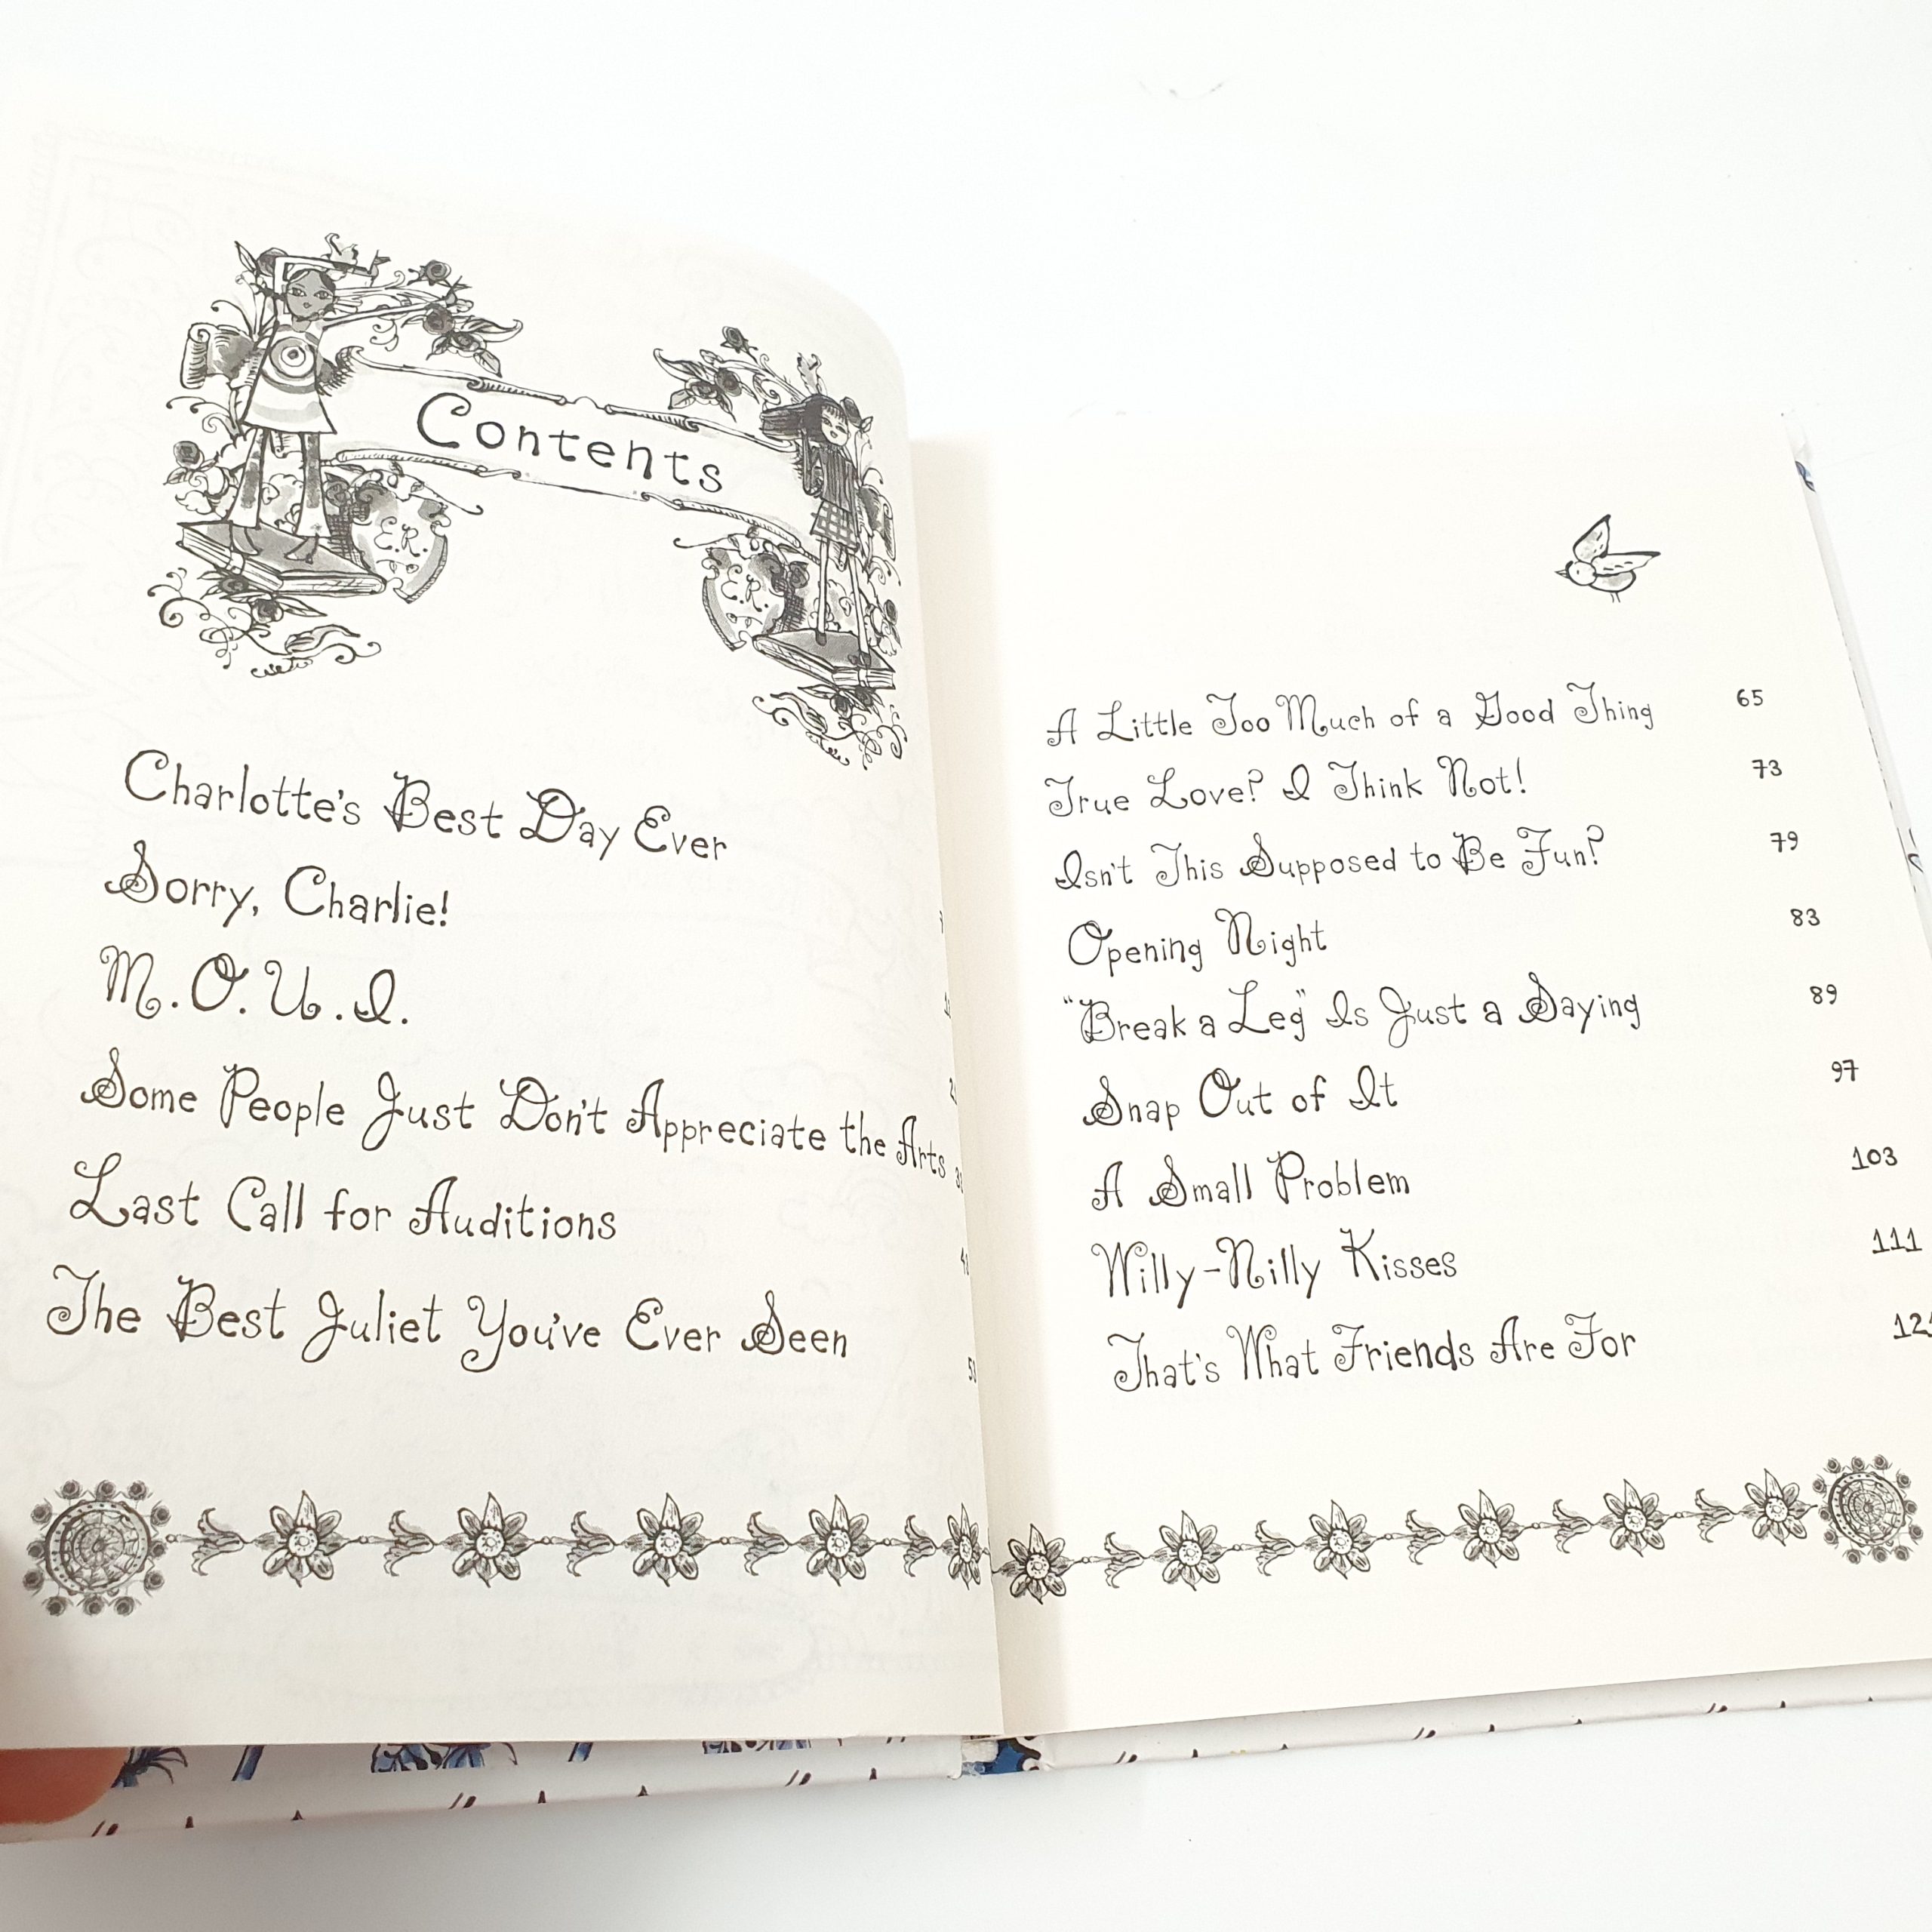 Contents
E.R.
E.R.
Charlotte's Best Day Ever
Sorry, Charlie!
M.O.U.I.
Some People Just Don't Appreciate the Arts
Last Call for Auditions
The Best Juliet You've Ever Seen
A Little Too Much of a Good Thing 65
True Love? I Think Not! 73
Isn't This Supposed to Be Fun? 79
Opening Night 83
"Break a Leg" Is Just a Saying 89
Snap Out of It 97
A Small Problem 103
Willy-Nilly Kisses 111
That's What Friends Are For